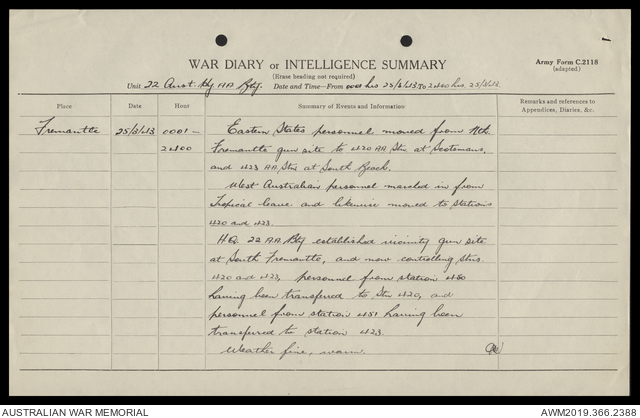 1
WAR DIARY or INTELLIGENCE SUMMARY
Army Form C.2118
(adapted)
(Erase heading not required)
Unit 22 Aust. Hy AA Bty. Date and Time—From 0001 hrs 25/3/43 To 2400 hrs. 25/3/43.
Place Date Hour Summary of Events and Information Remarks and references to Appendices, Diaries, &c.
Fremantle 25/3/43 0001 – Eastern States personnel moved from Nth.
2400 Fremantle gun site to 420 AA Stn at Scotsmans,
and 423 AA Stn at South Beach.
West Australian personnel marched in from
Tropical leave and likewise moved to stations
420 and 423.
HQ. 22 AA Bty established vicinity gun site
at South Fremantle, and now controlling stns.
420 and 423, personnel from station 450
having been transferred to Stn 420, and
personnel from station 451 having been
transferred to station 423.
Weather fine, warm.
AUSTRALIAN WAR MEMORIAL
AWM2019.366.2388